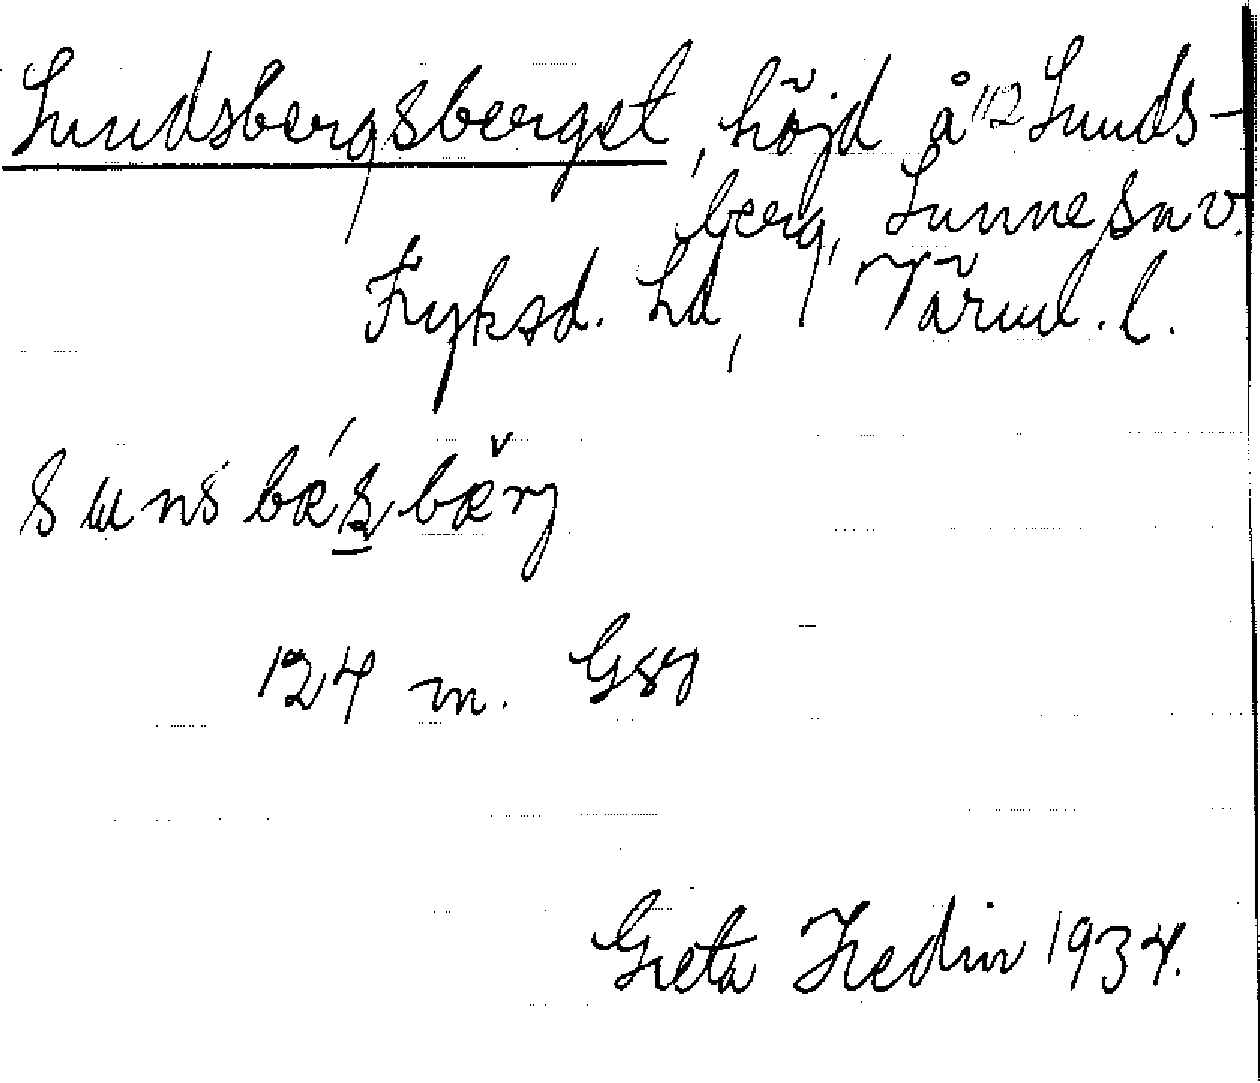 Sundsbergsberget, höjd å 1/2 Sunds-
berg, Sunne sn v.
Fryksd. hd, Värml. l.
sunsbǽsbærj
124 m. Gsg
Greta Hedin 1934.